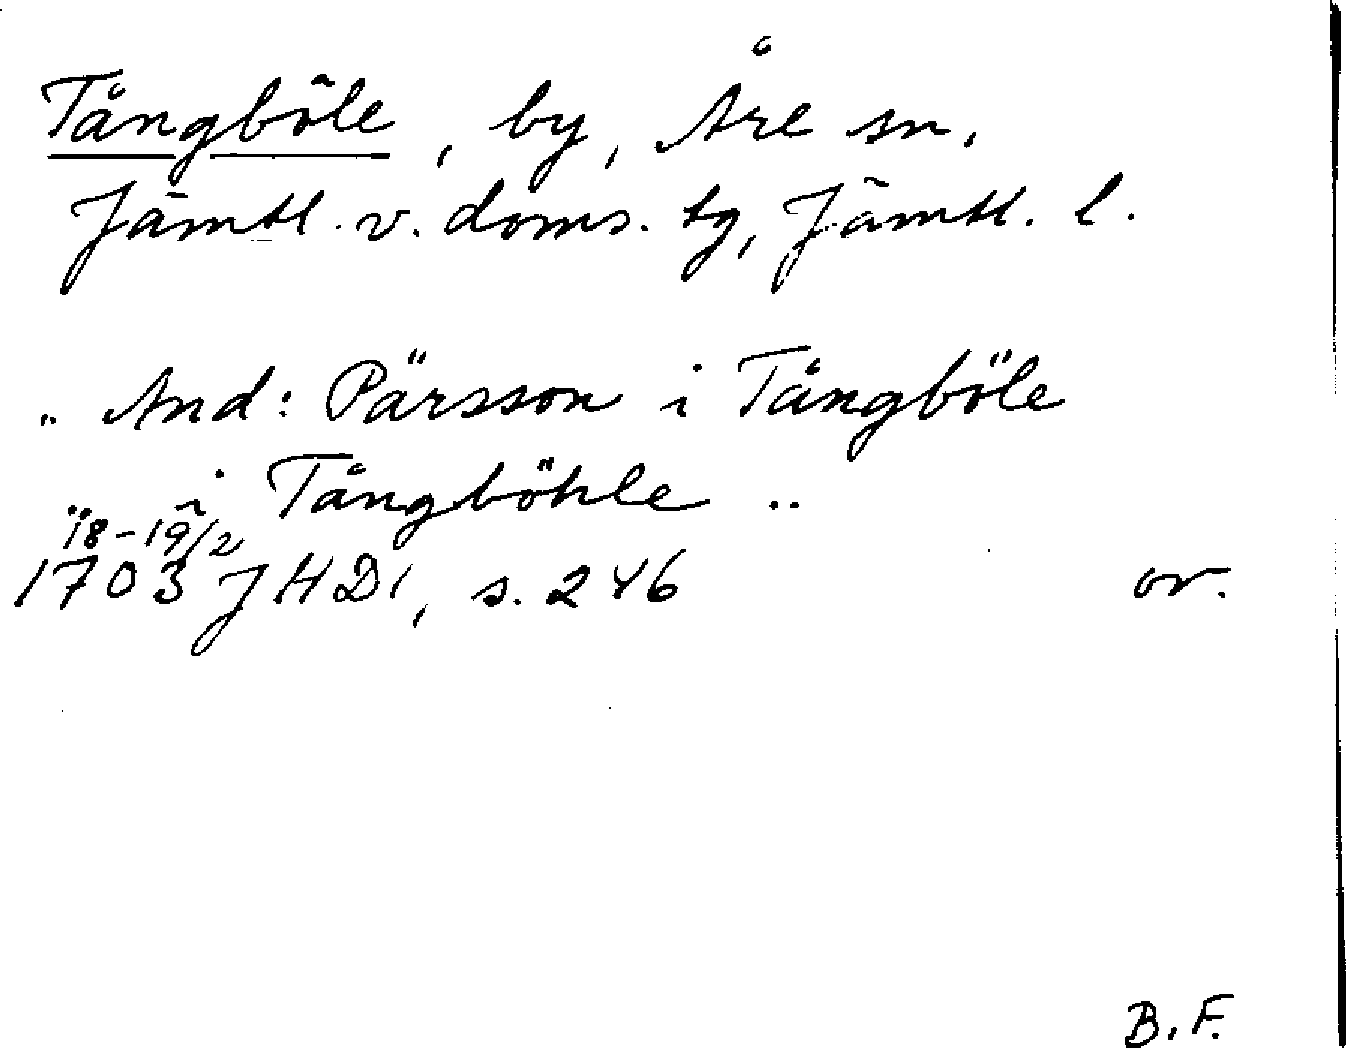 Tångböle, by, Åre sn,
Jämtl. v. doms. tg, Jämtl. l.
.. And: Pärsson i Tångböle
.. i Tångböhle ..
18-19/2
1703 JHD1, s. 246 or.
B.F.